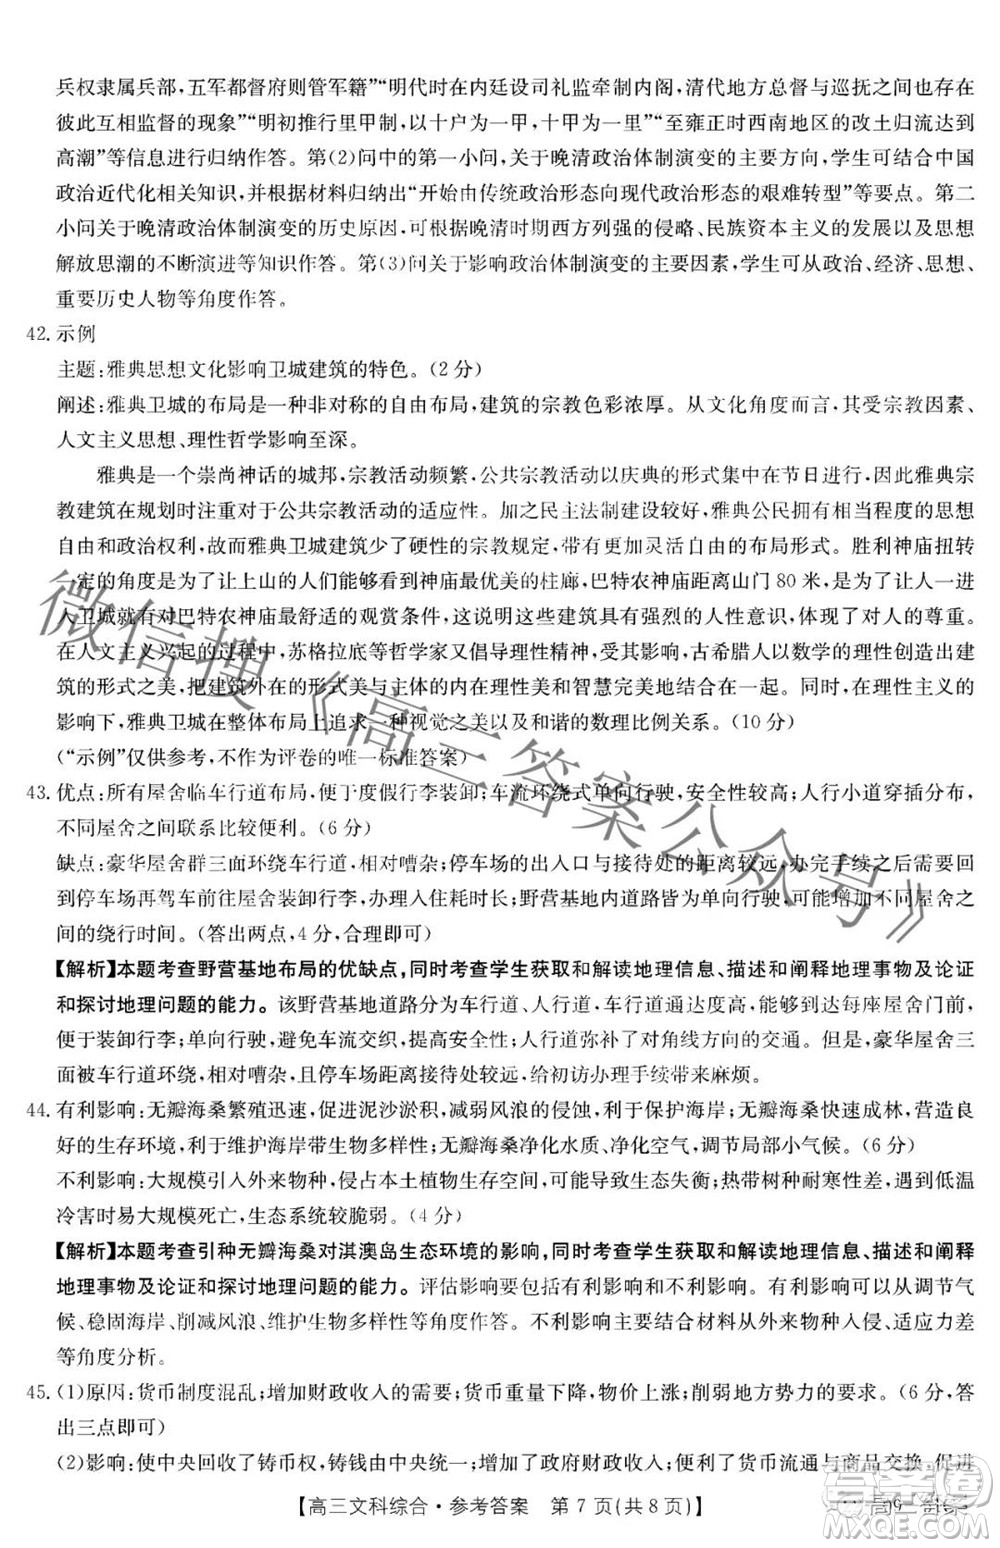 兵权隶属兵部,五军都督府则管军籍”“明代时在内廷设司礼监牵制内阁,清代地方总督与巡抚之间也存在
彼此相互监督的现象”“明初推行里甲制,以十户为一甲,十甲为一里”“至雍正时西南地区的改土归流达到
高潮”等信息进行归纳作答。第(2)问中的第一小问,关于晚清政治体制演变的主要方向,学生可结合中国
政治近代化相关知识,并根据材料归纳出“开始由传统政治形态向现代政治形态的艰难转型”等要点。第二
小问关于晚清政治体制演变的历史原因,可根据晚清时期西方列强的侵略、民族资本主义的发展以及思想
解放思潮的不断演进等知识作答。第(3)问关于影响政治体制演变的主要因素,学生可从政治、经济、思想、
重要历史人物等角度作答。
42. 示例
主题:雅典思想文化影响卫城建筑的特色。(2 分)
阐述:雅典卫城的布局是一种非对称的自由布局,建筑的宗教色彩浓厚。从文化角度而言,受宗教因素、
人文主义思想、理性哲学影响至深。
雅典是一个崇尚神话的城邦,宗教活动频繁,公共宗教活动以庆典的形式集中在节日进行,因此雅典宗
教建筑在规划时注重对于公共宗教活动的适应性。加之民主法制建设较好,雅典公民拥有相当程度的思想
自由和政治权利,故而雅典卫城建筑少了硬性的宗教规定,带有更加灵活自由的部分。胜利神庙扭转
一定的角度是为了让上山的人们看到神庙最优美的柱廊,巴特农神庙距离山门 80 米,是为了让人一进
入卫城就有对于巴特农神庙最舒适的观赏条件,这说明了这些建筑的人性意识,体现了对人的尊重。
在人文主义兴起的过程中,苏格拉底等哲学家又倡导理性精神,影响到建筑,古希腊人以理性创造出建
筑的形式之美,把建筑外在的形式美与内在的理性美和智慧完美地结合在一起。同时,在理性之美的
影响下,雅典卫城在整体布局上追求一种视觉之美以及和谐的数理比例关系。(10 分)
(“示例”仅供参考,不作为评卷的唯一标准答案)
43. 优点:所有屋舍临车行道布局,便于度假行李装卸;车流环绕式单向行驶,安全性较高;人行小道穿插分布,
不同屋舍之间联系比较便利。(6 分)
缺点:豪华屋舍群三面环绕车行道,相对嘈杂;停车场的出入口与接待处的距离较远,办完手续之后需要回
到停车场再驾车前往屋舍存行李,办理入住耗时长;野营基地内道路皆为单行道,可能增加不同屋舍之
间的绕行时间。(答出两点,4 分,合理即可)
【解析】本题考查野营基地布局的优缺点,同时考查学生获取和解读地理信息、描述和阐释地理事物及论证
和探讨地理问题的能力。该野营基地道路分为车行道、人行道,车行道通达度高,能够到达每座屋舍门前,
便于装卸行李;车行道为单行道,避免车流交织,提高安全性;人行道弥补了对角线方向的交通。但是,豪华屋舍三
面被车行道环绕,相对嘈杂。此外停车场距离接待处较远,给初访办理手续带来麻烦。
44. 有利影响:无瓣海桑繁殖迅速,促进泥沙淤积,减弱风浪的侵蚀,利于保护海岸;无瓣海桑快速成林,营造良
好的生存环境,利于维护海岸带生物多样性;无瓣海桑净化水质、净化空气,调节局部小气候。(6 分)
不利影响:大规模引入外来物种,挤占本地生物生存空间,可能导致生态失衡;大规模种植耐寒性差,遇到
冷害时易大规模死亡,生态系统较脆弱。(4 分)
【解析】本题考查引种无瓣海桑对淇澳岛生态环境的影响,同时考查学生获取和解读地理信息、描述和阐释
地理事物及论证和探讨地理问题的能力。评估影响要包括有利影响和不利影响。有利影响可以从调节气
候、稳固海岸、削减风浪、维护生物多样性等角度分析。不利影响主要结合材料从外来物种、适应能力差
等角度分析。
45. (1)原因:货币制度混乱;增加财政收入的需要;货币质量下降,物价上涨;削弱地方势力的要求。(6 分,答
出三点即可)
(2)影响:使中央回收了铸币权,铸钱由中央统一管理;增加了政府财政收入;便利了货币流通与商品交换,促进
【高三文科综合·参考答案 第 7 页(共 8 页)】
微信搜《高三答案公众号》
答案圈
MXQE.COM